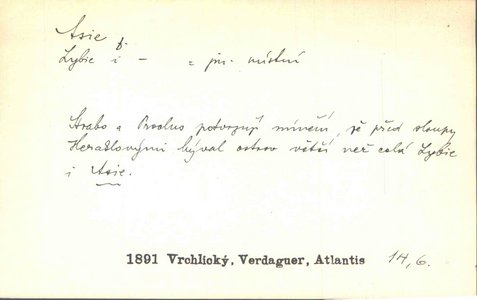 Asie f.
Lybie i – = jm. místní
Strabo a Proclus potvrzují mínění, že před sloupy
Heraklovými býval ostrov větší než celá Lybie
i Asie.
1891 Vrchlický, Verdaguer, Atlantis 14,6.